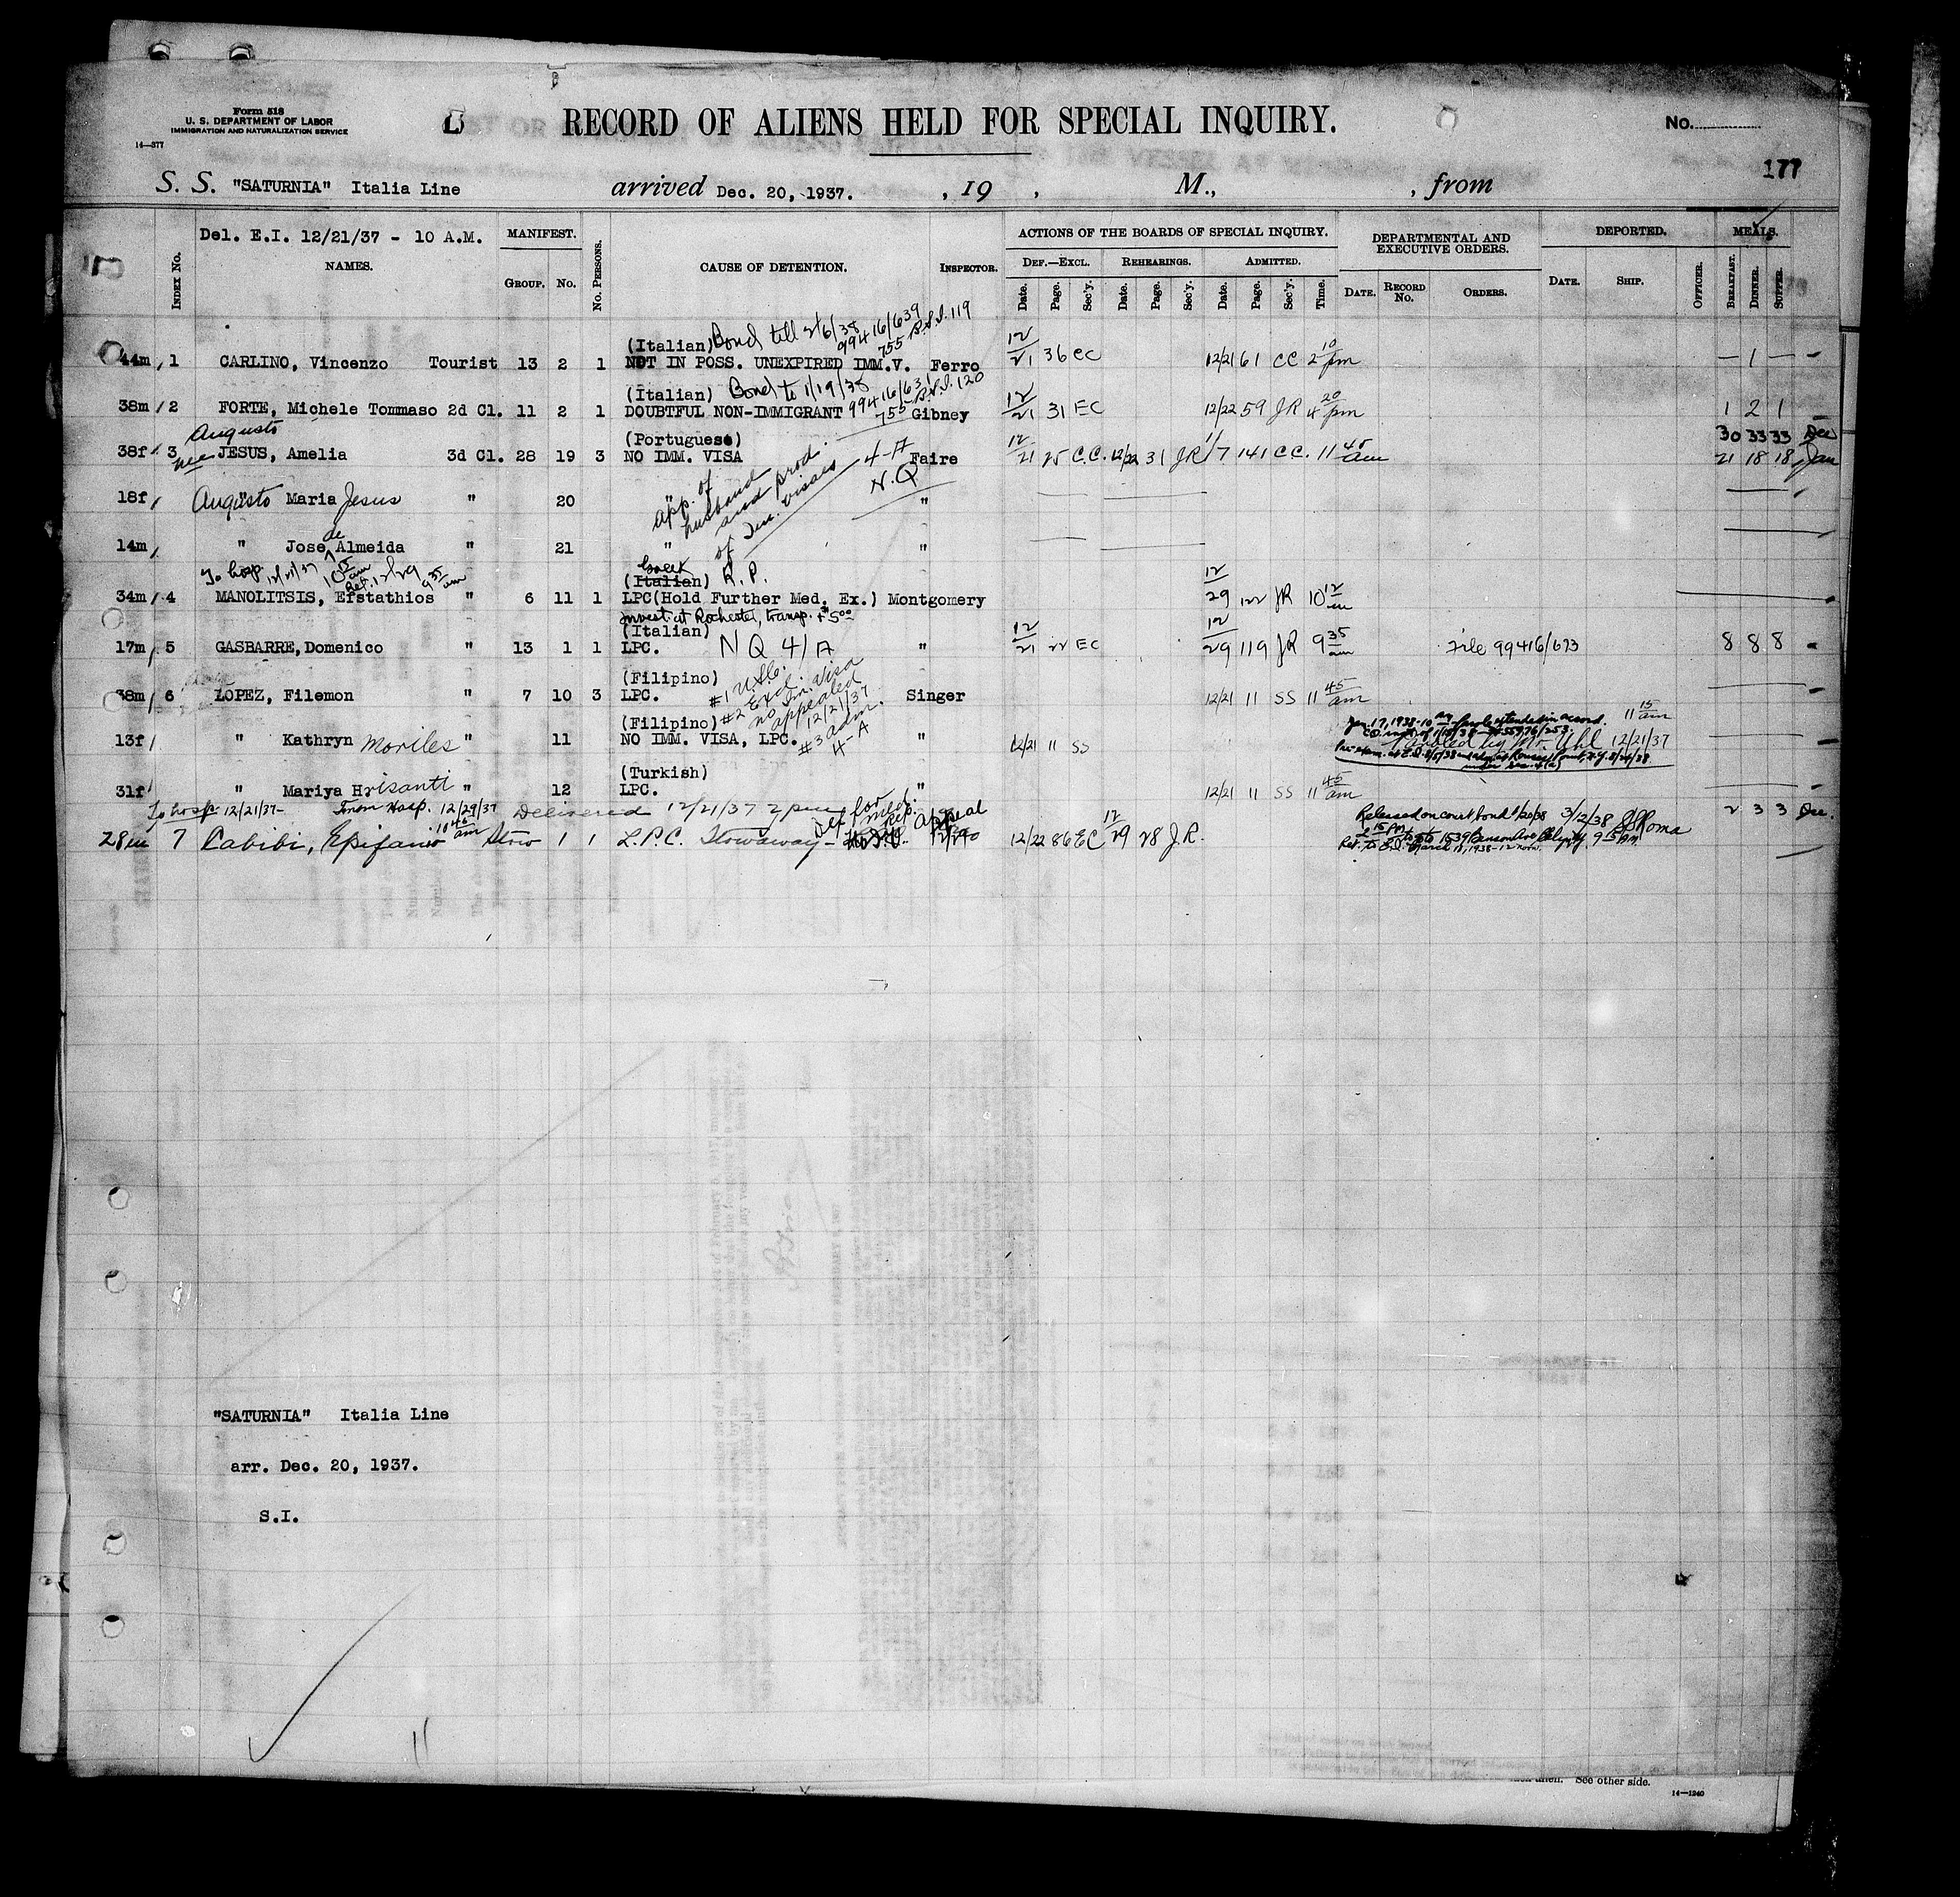 Form 518
U. S. DEPARTMENT OF LABOR
IMMIGRATION AND NATURALIZATION SERVICE
14—377
RECORD OF ALIENS HELD FOR SPECIAL INQUIRY.
No.
177
S. S. "SATURNIA" Italia Line arrived Dec. 20, 1937. , 19 , M., , from
Del. E.I. 12/21/37 - 10 A.M.
MANIFEST.
ACTIONS OF THE BOARDS OF SPECIAL INQUIRY.
DEPARTMENTAL AND EXECUTIVE ORDERS.
DEPORTED.
MEALS.
INDEX No. NAMES. GROUP. No. No. PERSONS. CAUSE OF DETENTION. INSPECTOR.
DEF.—EXCL. REHEARINGS. ADMITTED.
Date. Page. Sec'y. Date. Page. Sec'y. Date. Page. Sec'y. Time. DATE. RECORD No. ORDERS. DATE. SHIP. OFFICER. BREAKFAST. DINNER. SUPPER.
(Italian) Bond till 2/6/38 99416/639 755 B.S.I. 119
44m 1 CARLINO, Vincenzo Tourist 13 2 1 NOT IN POSS. UNEXPIRED IMM.V. Ferro 12/21 36 CC 12/21 61 CC 2 10 pm — 1 — -
(Italian) Bond to 1/19/38 99416/631 755 B.S.I. 120
38m 2 FORTE, Michele Tommaso 2d Cl. 11 2 1 DOUBTFUL NON-IMMIGRANT Gibney 12/21 31 EC 12/22 59 JR 4 20 pm 1 2 1 -
Augusto
(Portuguese)
30 33 33 Dec
38f 3 nee JESUS, Amelia 3d Cl. 28 19 3 NO IMM. VISA 4-A Faire 12/21 25 C.C. 12/22 31 JR 1/7 141 CC. 11 45 am 21 18 18 Jan
app. of husband and prod. of Im. visas N.Q
18f Augusto " Maria Jesus " 20 " "
de
14m " Jose Almeida " 21 " "
To hosp 12/21/37 10 15 am Ret. 12/29 9 35 am
Greek
(Italian) R.P.
34m 4 MANOLITSIS, Efstathios " 6 11 1 LPC(Hold Further Med. Ex.) Montgomery 12/29 122 JR 10 12 am
invest. at Rochester, transp. + $5.00
(Italian)
17m 5 GASBARRE, Domenico " 13 1 1 LPC. N Q 4/A " 12/21 22 EC 12/29 119 JR 9 35 am File 99416/673 8 8 8 -
(Filipino)
38m 6 LOPEZ, Filemon " 7 10 3 LPC. Singer 12/21 11 SS 11 45 am
#2 Excl. no Im. Visa appealed 12/21/37
#3 adm. 4-A
(Filipino)
13f " Kathryn Moriles " 11 NO IMM. VISA, LPC. " 12/21 11 SS
11 15 am
Paroled by Mr. Uhl 12/21/37
(Turkish)
31f " Mariya Hrisanti " 12 LPC. " 12/21 11 SS 11 45 am
To hosp 12/21/37- From Hosp. 12/29/37 10 45 am Delivered 12/21/37 2 pm
28m 7 Cabibi, Epifanio Stow 1 1 L.P.C. Stowaway- Appeal 12/22 86 EC 12/29 28 J.R. 2 3 3 Dec.
Released on court bond 1/20/38 3/2/38
1539 Benson Ave Bklyn
Ret. to E.I. March 11, 1938-12 noon.
"SATURNIA" Italia Line
arr. Dec. 20, 1937.
S.I.
11
alien. See other side.
14—1240